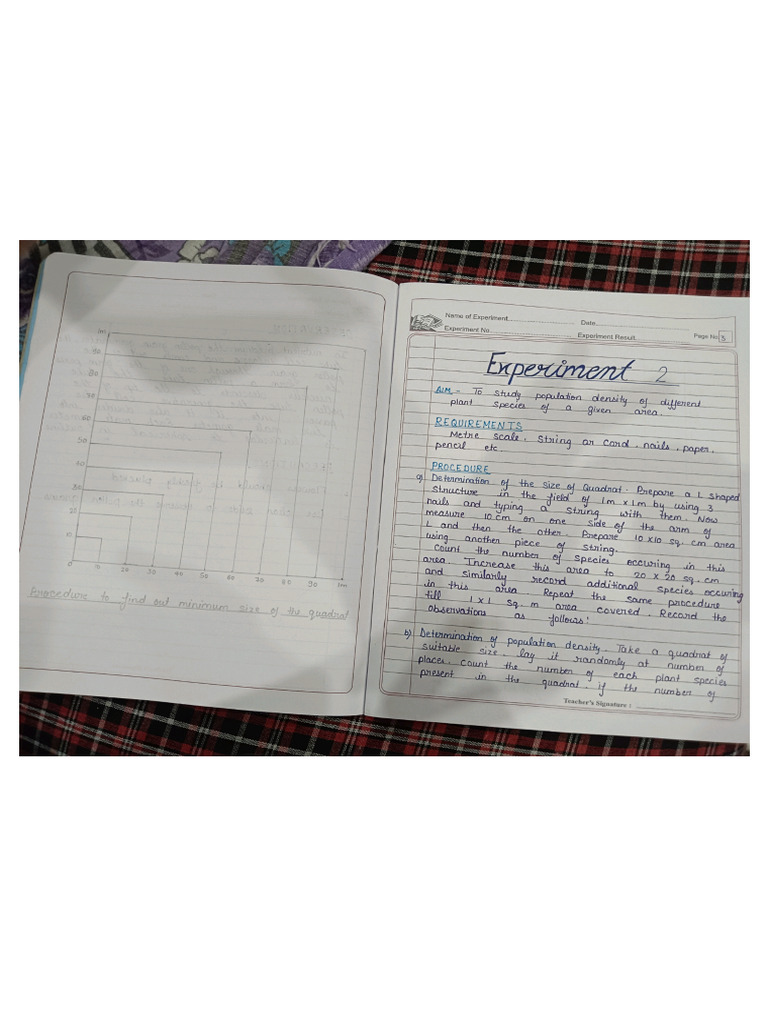 1m
90
80
70
60
50
40
30
20
10
0 10 20 30 40 50 60 70 80 90 1m
Procedure to find out minimum size of the quadrat
Name of Experiment Date
Experiment No Experiment Result Page No. 5
Experiment 2
AIM - To study population density of different
plant species of a given area.
REQUIREMENTS
Metre scale, string or cord, nails, paper,
pencil etc.
PROCEDURE
a) Determination of the size of Quadrat. Prepare a L shaped
structure in the field of 1m x 1m by using 3
nails and typing a string with them. Now
measure 10 cm on one side of the arm of
L and then the other. Prepare 10 x 10 sq. cm area
using another piece of string.
Count the number of species occuring in this
area. Increase this area to 20 x 20 sq. cm
and similarly record additional species occuring
in this area. Repeat the same procedure
till 1 x 1 sq. m area covered. Record the
observations as follows:
b) Determination of population density. Take a quadrat of
suitable size. lay it randomly at number of
places. count the number of each plant species
present in the quadrat. if the number of
Teacher's Signature :